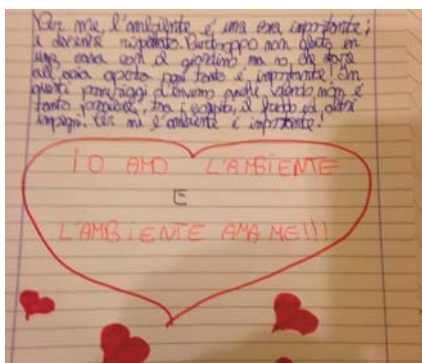 Per me, l'ambiente é una cosa importante;
e dovrebbe rispettato. Purtroppo non abito in
una casa con il giardino ma so che stare
all'aria aperta ogni tanto é importante! In
questi pomeriggi d'inverno anche volendo non é
tanto possibile, tra i compiti, il freddo ed altri
impegni! Per mé l'ambiente é importante!
IO AMO L'AMBIENTE
E
L'AMBIENTE AMA ME!!!